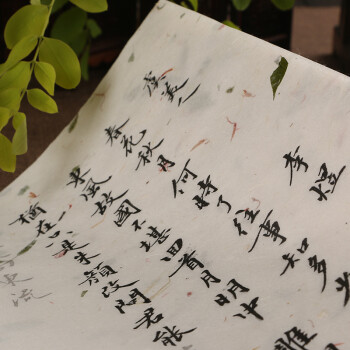 虞美人 李煜
春花秋月何時了往事知多少
東風故國不堪回首月明中雕
猶在只是朱顏改問君能
東流